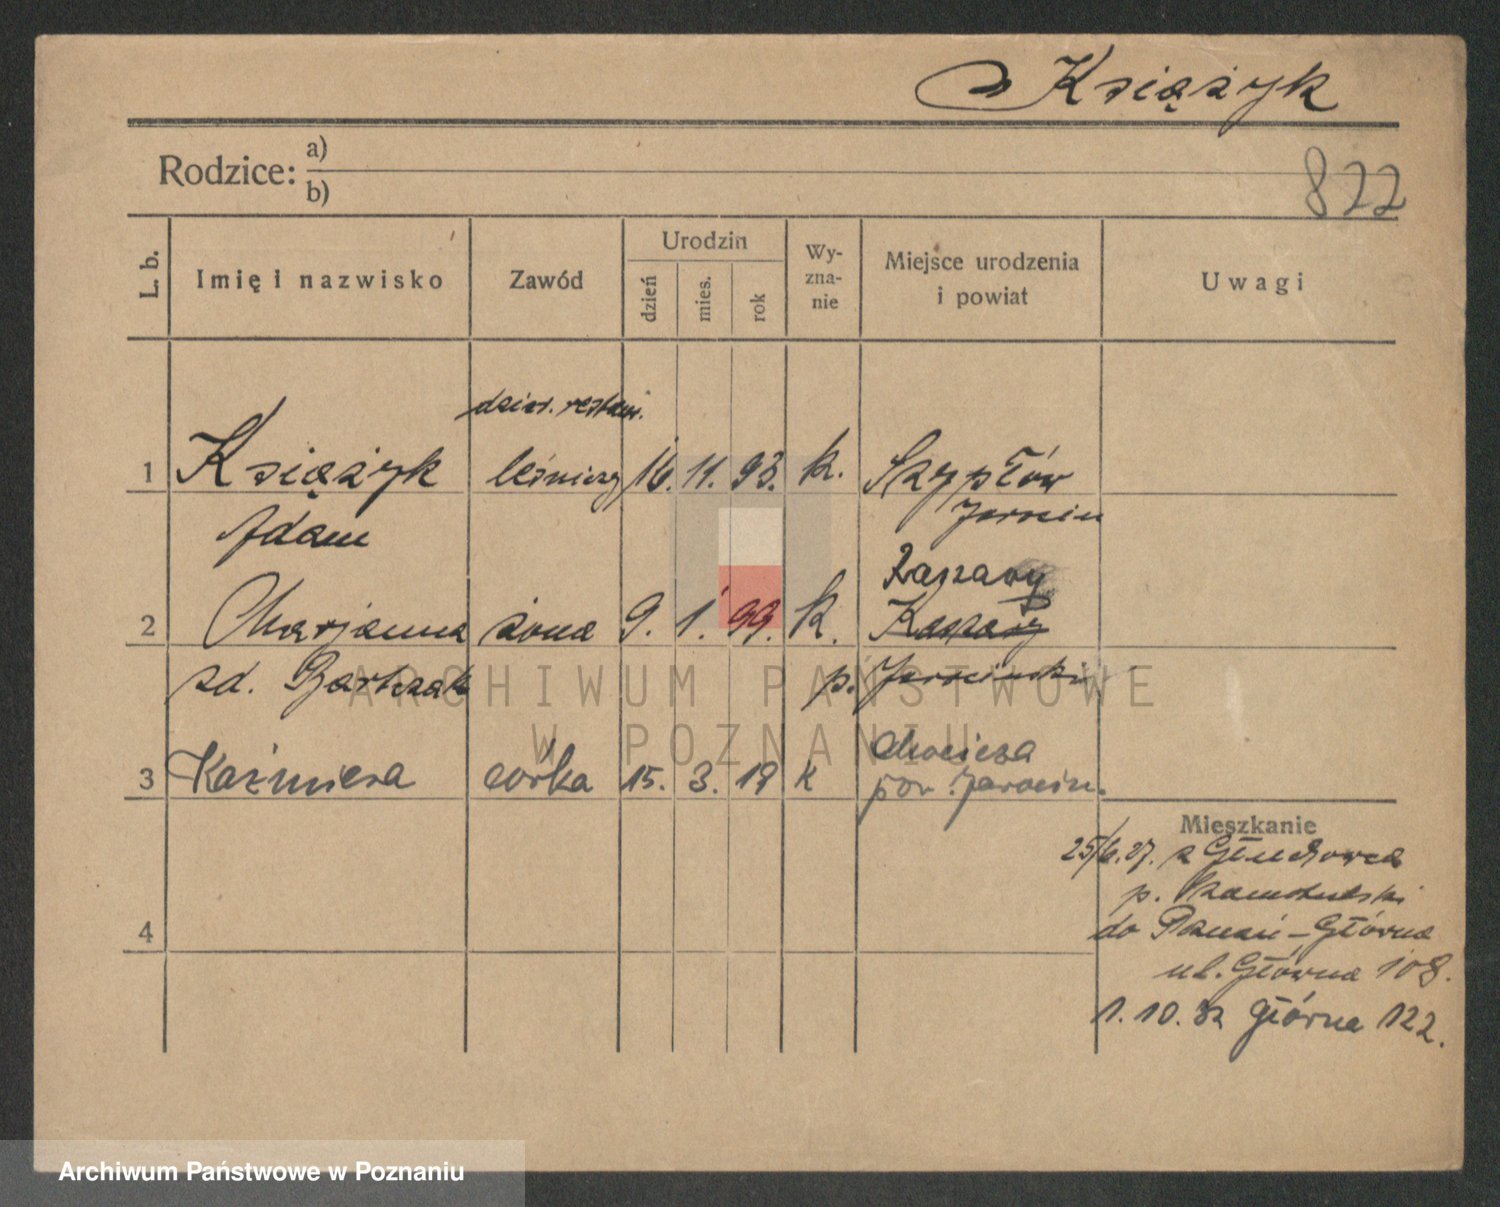 Książyk
Rodzice: a)
b)
822
L. b.
Imię i nazwisko
Zawód
Urodzin
dzień
mies.
rok
Wy-
zna-
nie
Miejsce urodzenia
i powiat
Uwagi
dzierż. restaur.
1 Książyk leśniczy 16. 11. 93. k. Szypłów
Adam Jarocin
Raszawy
2 Marjanna żona 9. 1. 99. k.
zd. Bartczak p. Jarociński
3 Kaźmiera córka 15. 3. 19 k Chocicza
pow. Jarocin.
Mieszkanie
25/6.27. z Głuchowca
p. Szamotulski
4 do Poznań-Główna
ul. Główna 108.
1. 10. 32 Główna 122.
ARCHIWUM PAŃSTWOWE
W POZNANIU
Archiwum Państwowe w Poznaniu